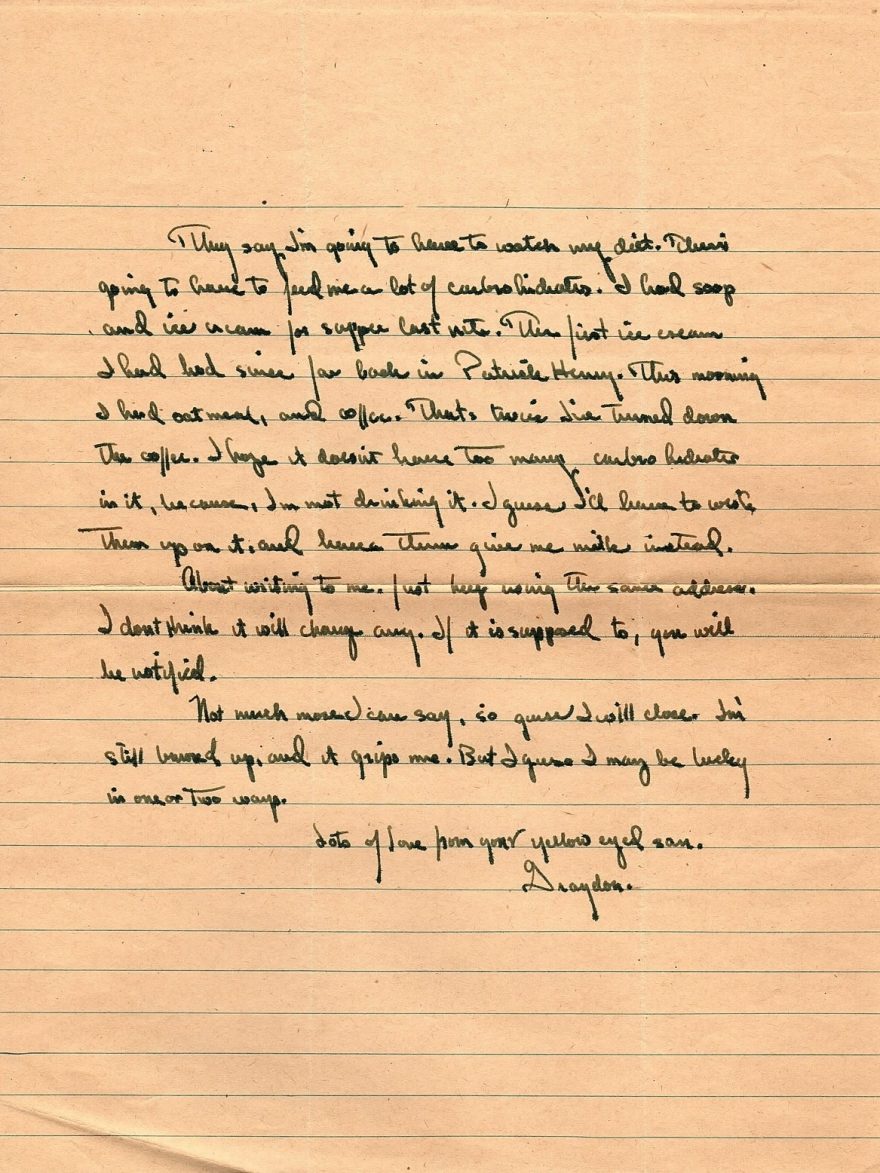 They say I'm going to have to watch my diet. Their
going to have to feed me a lot of carbrohidrates. I had soop
and ice cream for supper last nite. The first ice cream
I had had since far back in Patrick Henry. This morning
I had oatmeal, and coffee. That's twice I've turned down
the coffee. I hope it doesn't have too many carbrohidrates
in it, because, I'm not drinking it. I guess I'll have to
them up on it, and have them give me milk instead.
About writing to me. Just keep using the same address.
I dont think it will change any. If it is supposed to, you will
be notified.
Not much more I can say, so guess I will close. I'm
still up, and it grips me. But I guess I may be lucky
in one or two ways.
Lots of love from your yellow eyed son.
Graydon.